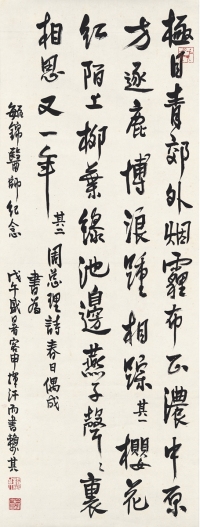 極目青郊外烟霾布正濃中原
方逐鹿博浪踵相踪其一櫻花
红陌上柳葉緑池邊燕子聲々裏
相思又一年其二周总理詩春日偶成
書爲
毓錦醫師纪念
戊午盛暑客申揮汗雨書